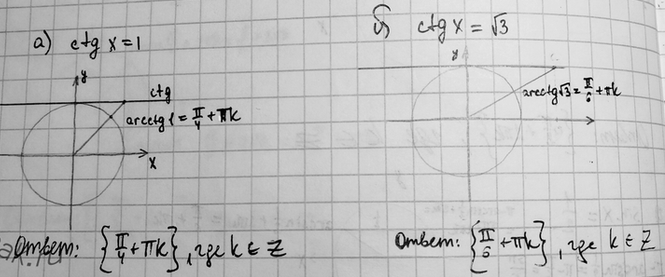 а) ctg x = 1
y
ctg
arcctg 1 = π/4 + πk
x
Ответ: {π/4 + πk}, где k ∈ Z
б) ctg x = √3
y
arcctg √3 = π/6 + πk
Ответ: {π/6 + πk}, где k ∈ Z